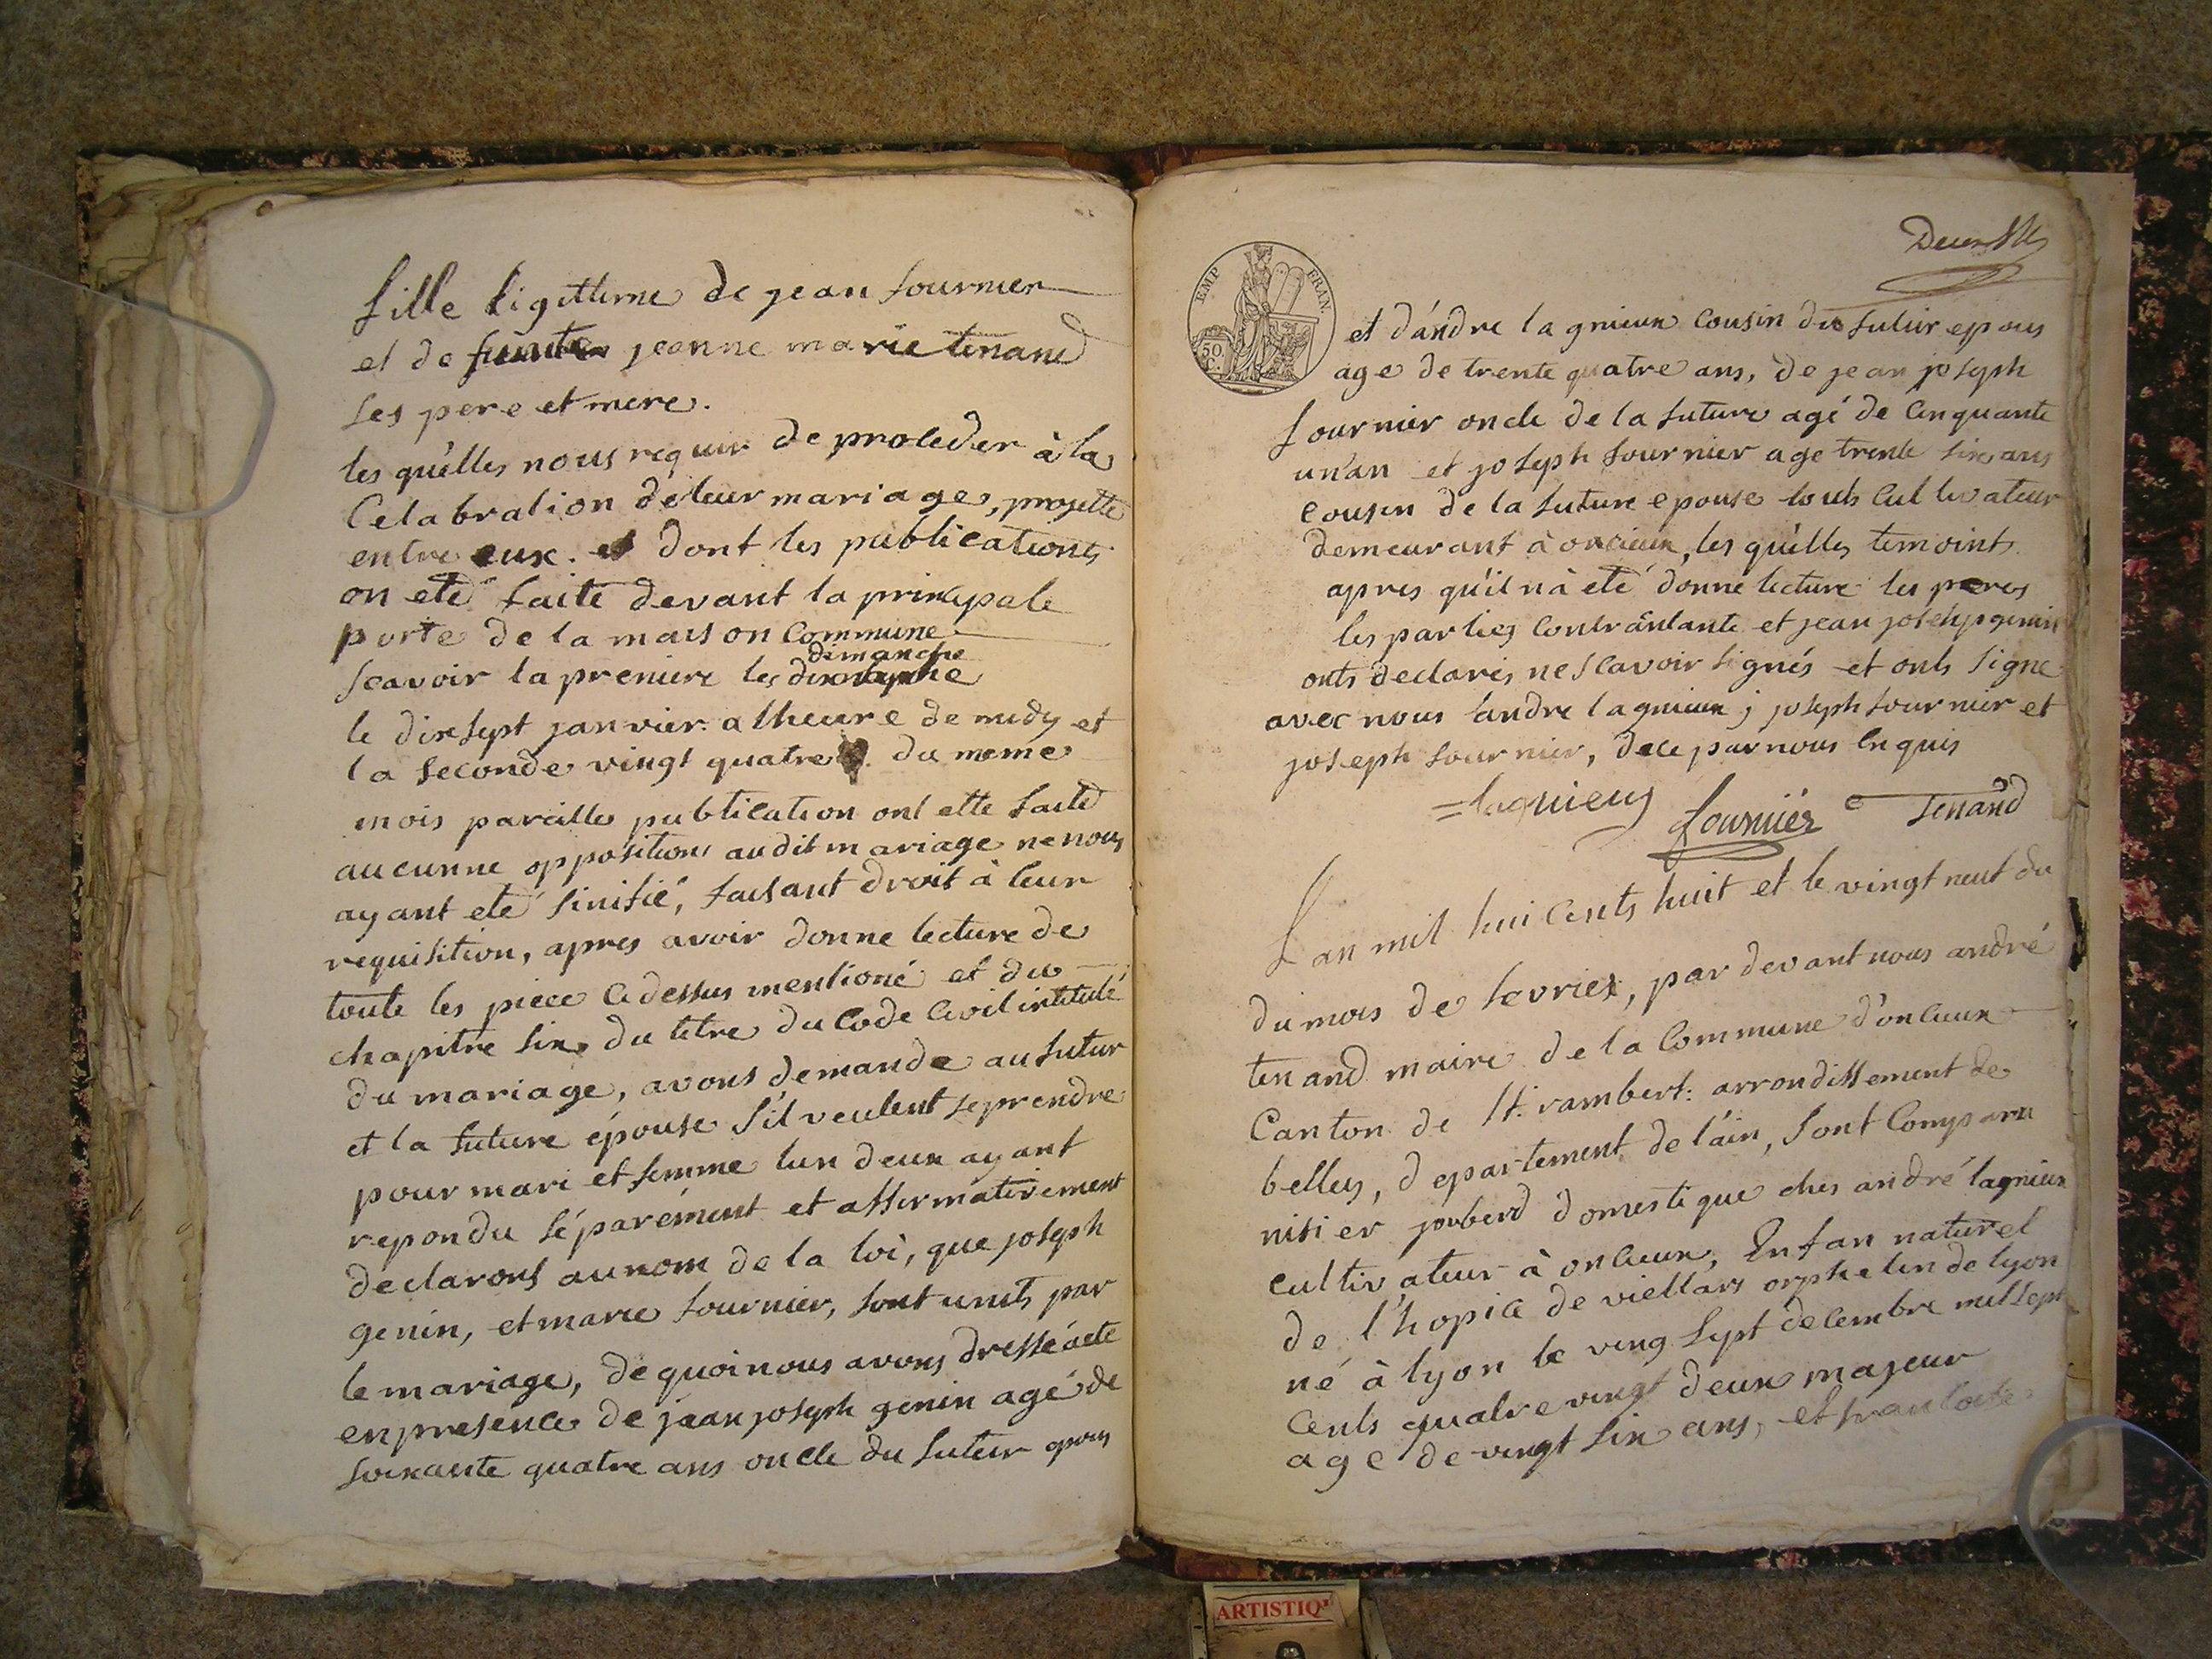 fille ligittime de jean fournier
et de jeanne marie tenand
ses pere et mere.
les quélles nous requir de proceder à la
Celabration de leur mariage, projette
entre eux. et dont les publications
on eté faite devant la principale
porte de la maison Commune
dimanche
scavoir la premiere les
le dix sept janvier. a lheure de midy et
la seconde vingt quatre du meme
mois pareilles publication ont ette faite
aucunne oppositions audit mariage ne nous
ayant eté sinifié, faisant droit à leur
requisition, apres avoir donne lecture de
toute les piece Cidessus mentioné et du
chapitre six du titre du Code Civil intitulé
du mariage, avons demande au futur
et la future épouse s'il veulent se prendre
pour mari et femme lun deux ayant
repondu séparément et affirmativement
declarons au nom de la loi, que joseph
genin, et marie fournier, sont units par
le mariage, de quoi nous avons dressé acte
en presence de jean joseph genin agé de
soixante quatre ans oncle du futur epous
EMP FRAN.
50. C.
et dándre lagnieux cousin du futur epous
age de trente quatre ans, de jean joseph
fournier oncle de la future agé de Cinquante
un'an et joseph fournier age trente six ans
cousin de la future epouse touts Cultivateur
demeurant à oncieux, les quélles temoints
apres qu'il n'à eté donné lecture les peres
les parties Contràctante et jean josehp genin
onts declarés ne scavoir signés et onts signe
avec nous andre lagnieux, joseph fournier et
joseph fournier, dece par nous Enquis
=lagnieux fournier Tenand
Lan mil huit Cents huit et le vingt neuf du
du mois de fevrier, par devant nous andré
tenand maire de la Commune d'oncieux
Canton de St. rambert: arrondissement de
belley, departement de láin, sont Comparu
nisier jouberd domestique ches andré lagnieux
cultivateur à oncieux, Enfan naturel
de l'hopice de viellars orphelin de lyon
né à lyon le ving sept decembre mil sept
Cents quatre vingt deux majeur
age de vingt six ans, et francoise
ARTISTIQ'